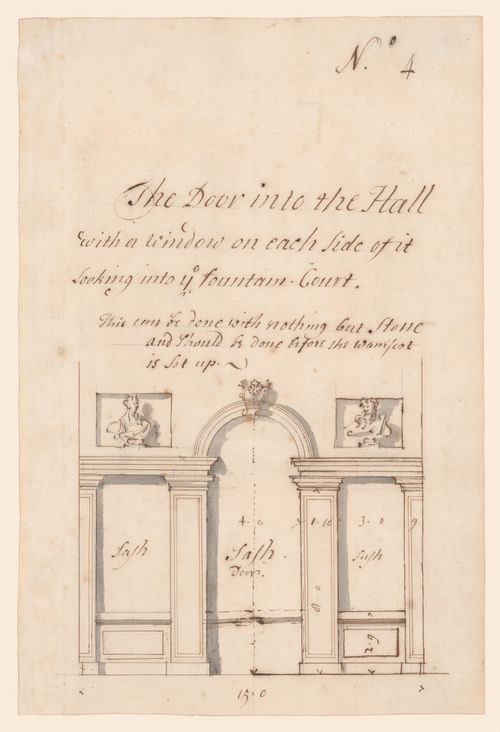 N.º 4
The Door into the Hall
with a window on each side of it
Looking into yᵉ fountain-Court.
This can be done with nothing but Stone
and should be done before the wainscot
is set up.
4-0
1-10
3-0
9
Sash
Sash
Door.
Sash
8-0
2-6
15-0